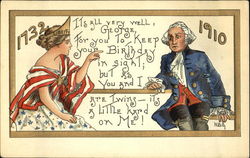 1732
1910
It's all very well,
George,
for you to keep
your Birthday
in sight;
but as
you and I
are Twins — it's
a little hard
on Me!